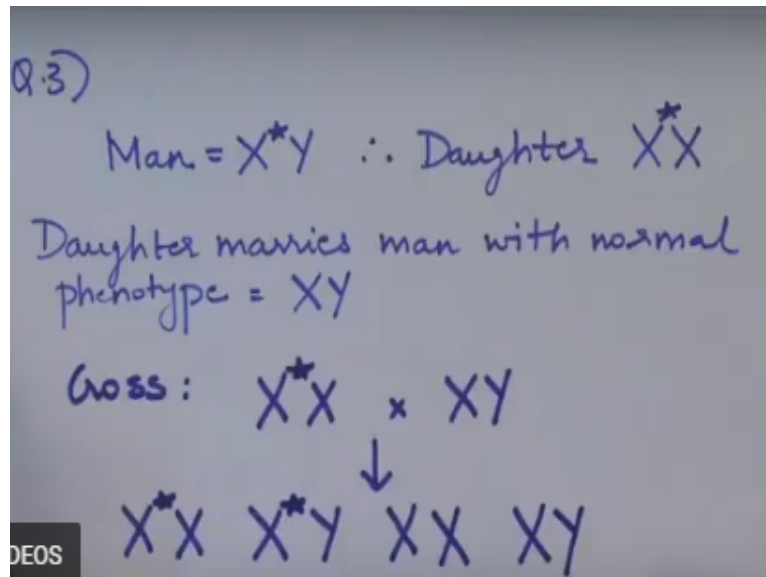 Q.3)
Man = X*Y ∴ Daughter X*X
Daughter marries man with normal
phenotype = XY
Cross: X*X x XY
↓
X*X X*Y XX XY
DEOS